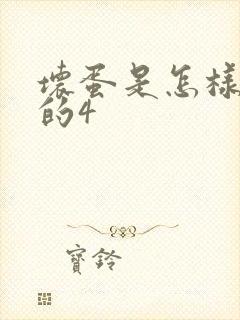 壞蛋是怎樣
的4
寶鈴